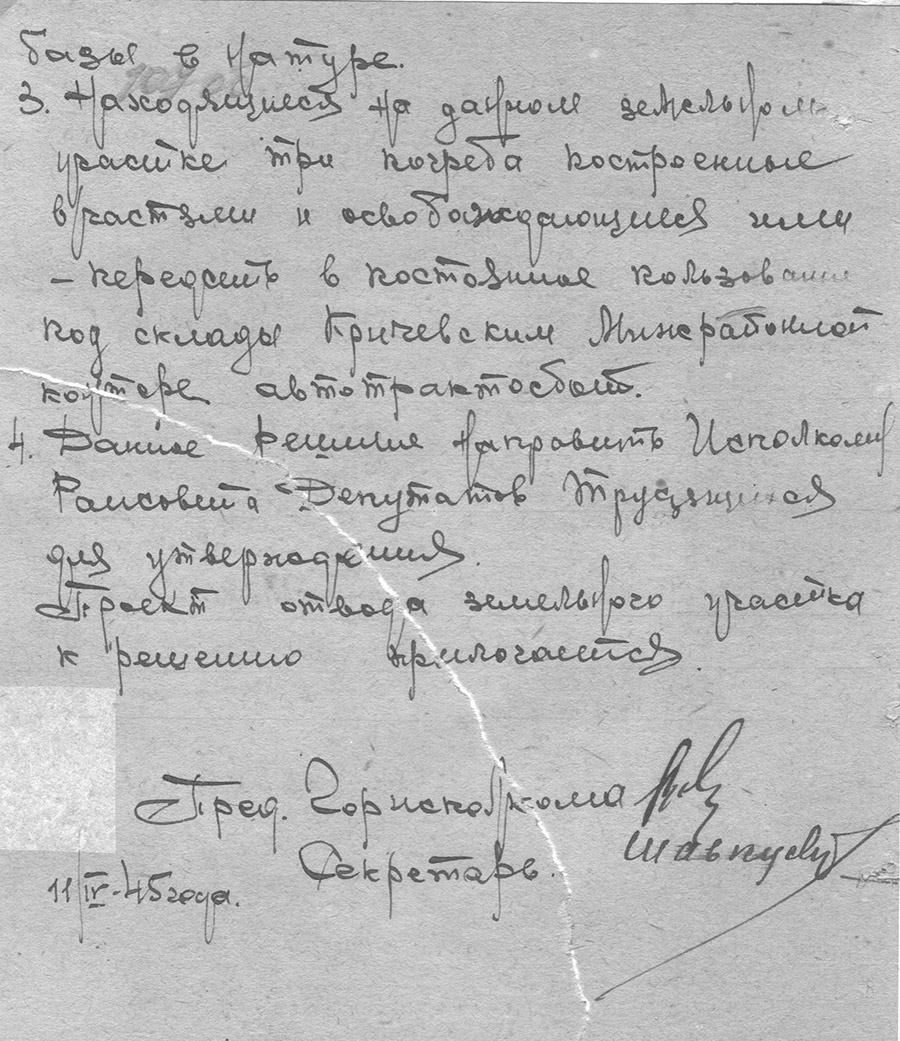 базы в натуре.
3. Находящиеся на данном земельном
участке три погреба построенные
в частями и освобождающиеся ими
– передать в постоянное пользование
под склады Кричевским Межрайонной
конторе автотрактосбыт.
4. Данное решение направить Исполкому
Райсовета Депутатов Трудящихся
для утверждения.
Проект отвода земельного участка
к решению прилагается.
Пред. Горисполкома
Секретарь.
11/IV-45 года.